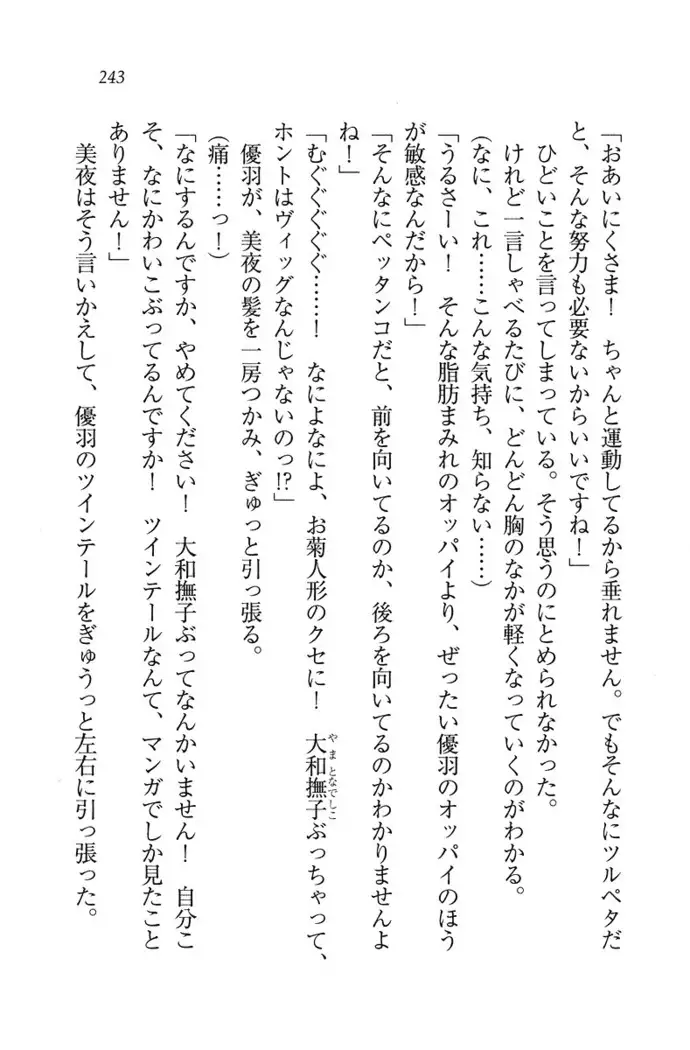 243
「おあいにくさま！　ちゃんと運動してるから垂れません。でもそんなにツルペタだ
と、そんな努力も必要ないからいいですね！」
ひどいことを言ってしまっている。そう思うのにとめられなかった。
けれど一言しゃべるたびに、どんどん胸のなかが軽くなっていくのがわかる。
（なに、これ……こんな気持ち、知らない……）
「うるさーい！　そんな脂肪まみれのオッパイより、ぜったい優羽のオッパイのほう
が敏感なんだから！」
「そんなにペッタンコだと、前を向いてるのか、後ろを向いてるのかわかりませんよ
ね！」
「むぐぐぐぐぐ……！　なによなによ、お菊人形のクセに！　大和撫子ぶっちゃって、
やまとなでしこ
ホントはヴィッグなんじゃないのっ!?」
優羽が、美夜の髪を一房つかみ、ぎゅっと引っ張る。
（痛……っ！）
「なにするんですか、やめてください！　大和撫子ぶってなんかいません！　自分こ
そ、なにかわいこぶってるんですか！　ツインテールなんて、マンガでしか見たこと
ありません！」
美夜はそう言いかえして、優羽のツインテールをぎゅうっと左右に引っ張った。